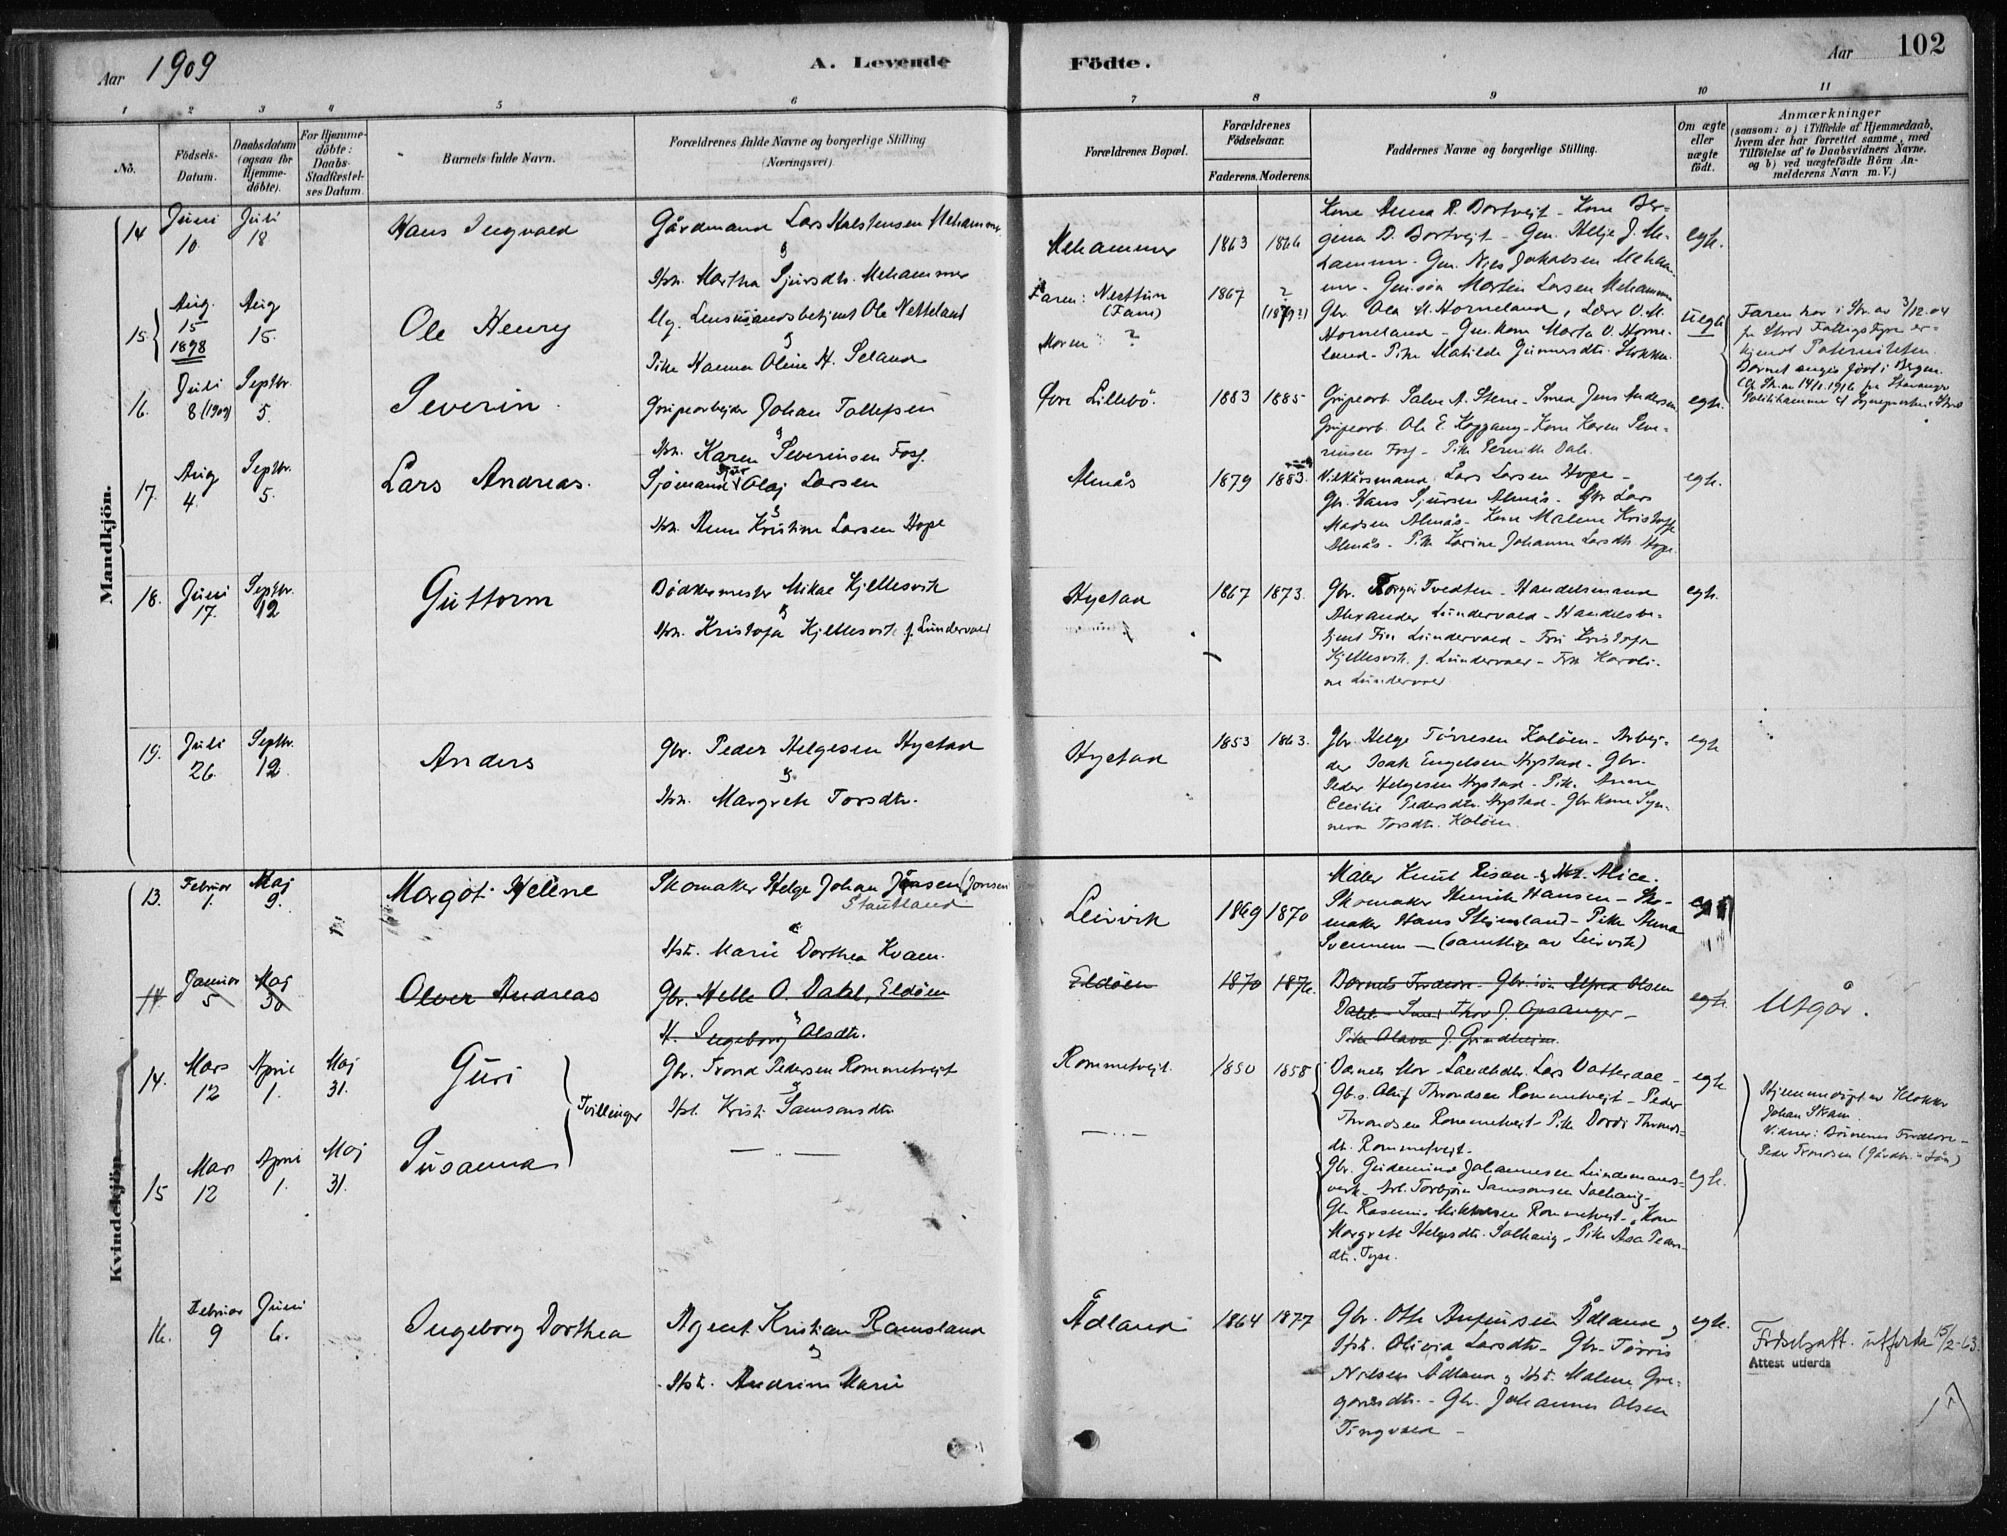 Aar 1909
A. Levende
Födte.
Aar
102
1 2 3 4 5 6 7 8 9 10 11
No.
Födsels-Datum.
Daabsdatum (ogsaa for Hjemme-döbte).
For Hjemme-döbte: Daabs-Stadfæstel-ses Datum.
Barnets fulde Navn.
Forældrenes fulde Navne og borgerlige Stilling (Næringsvei)
Forældrenes Bopæl.
Forældrenes Födselsaar.
Faderens. Moderens.
Faddernes Navne og borgerlige Stilling.
Om ægte eller uægte födt.
Anmærkninger
(saasom: a) i Tilfælde af Hjemmedaab,
hvem der har forrettet samme, med
Tilföielse af to Daabsvidners Navne,
og b) ved uægtefödte Börn An-
melderens Navn m. V.)
Mandkjön.
14 Juni 10 Juli 18
Hans Ingvald
Gårdmand Lars Halstensen Mehammer
&
Hst. Martha Sjursdtr. Mehammer
Mehammer
1863 1866
Kone Anna R. Bortveit - Kone Ber-
gina D. Bortveit - Gm. Helje J. Me-
hammer - Gm. Nils Jakobsen Meham-
mer - Gm. søn Martin Larsen Mehammer
egte.
15. Aug. 15 1898 Aug 15.
Ole Henry
Ug. Lensmandsbetjent Ole Netteland
&
Pike Hanna Oline H. Seland
Faren: Nesttun (Fana)
Moren: ?
1867 ? (1879?)
Gbr. Ola H. Horneland, Lærer O. M.
Horneland - Gm. kone Marta O. Horne-
land - Pike Matilde Gunnarsdtr. Stokken
uegte
Faren har i Skr. av 3/12.04
fr. Stord Fattigstyre er-
kjendt Paterniteten.
Barnet angis født i Bergen.
16. Juli 8 (1909) Septbr. 5.
Severin
Grubearbejder Johan Tollefsen
&
Hst. Karen Severinsen Fosj.
Øvre Lillebö.
1883 1885
Grubearb. Salve A. Stene - Smed Jens Andersen
Grubearb. Ole E. Koggang - Kone Karen Seve-
rinsen Fosj - Pike Pernille Dale.
egte.
17. Aug 4. Septbr. 5.
Lars Andreas.
Sjømand Olaj Larsen
&
Hst. Anna Kristine Larsen Hope
Almås
1879 1883.
Vilkårsmand Lars Larsen Hope -
Gbr. Hans Sjursen Almås - Gbr Lars
Madsen Almås - Kone Malene Kristoffe
Almås - Pike Karine Johanne Larsdtr. Hope
egte.
18. Juni 17. Septbr. 12
Guttorm
Bødkermester Mikal Kjellesvik
&
Hst. Kristofa Kjellesvik f. Lundervold
Hystad
1867 1873.
Gbr. Torger Tvedten - Handelsmand
Alexander Lundervold - Handelsbe-
tjent Fin Lundervold - Fru Kristofa
Kjellesvik f. Lundervold - Frk Karoli-
ne Lundervold
egte.
19. Juli 26. Septbr. 12.
Anders
Gbr. Peder Helgesen Hystad
&
Hst. Margrete Torsdtr.
Hystad
1853 1863.
Gbr. Helge Tørresen Kolöen - Arbej-
der Isak Engelsen Hystad - Gbr.
Peder Helgesen Hystad - Pike Anna
Cecilie Pedersdtr. Hystad - Gbr kone Syn-
neva Torsdtr. Kolöen.
egte
Kvindekjön
13. Februar 1. Maj 9.
Margot Helene
Skomaker Helge Johan Jonsen (Jonsen
Stautland
&
Hst. Marie Dorthea Kvam.
Leirvik
1869 1870
Maler Knut Risan & Hst. Alice.
Skomaker Henrik Hansen - Sko-
maker Hans Steinsland - Pike Anna
Svennem - (samtlige av Leirvik)
egte
14. Januar 5 Maj 30
Oliver Andreas
Gbr. Helle O. Dahl, Eldöen
&
H. Ingeborg Olsdtr.
Eldöen
1870 1876.
Barnets Forældre. Gbr. søn Alfred Olsen
Dahl - Smed Thor J. Opsanger -
Pike Olava J. Grindheim
egte.
Utgår.
14. Mars 12 April 1. Maj 31.
Guri
Tvillinger
Gbr. Trond Pedersen Rommetvejt
&
Hst. Kristi Samsonsdtr.
Rommetvejt.
1850 1858
Barnets Mor - Landhdlr. Lars Vatterdal -
Gbr. s. Oluf Throndsen Rommetvejt - Peder
Throndsen Rommetvejt - Pike Dordi Thronds-
dtr. Rommetvejt.
egte.
Hjemmedøpt av Klokker
Johan Skam.
Vidner: Børnenes Forældre -
Peder Trondsen (Gårdbr. søn)
15 Mars 12 April 1. Maj 31.
Susanna
Gbr. Gudemund Johannesen Lundemans-
verk - Arb. Torbjørn Samsonsen Solhaug -
Gbr. Rasmus Mikkelsen Rommetvejt - Kone
Margrete Helgesdtr. Solhaug - Pike Åsa Peders-
dtr. Tyse.
egte.
16. Februar 9 Juni 6.
Ingeborg Dorthea
Agent Kristian Ramsland
&
Hst. Andrine Marie
Ådland
1864 1877
Gbr. Otte Anfinsen Ådland &
Hst. Olivia Larsdtr - Gbr. Tørris
Nilsen Ådland & Hst. Malene Gre-
goriusdtr. - Gbr. Johannes Olsen
Tingvold -
egte.
Fødselsatt. utferda 15/2-63.
Attest utferda